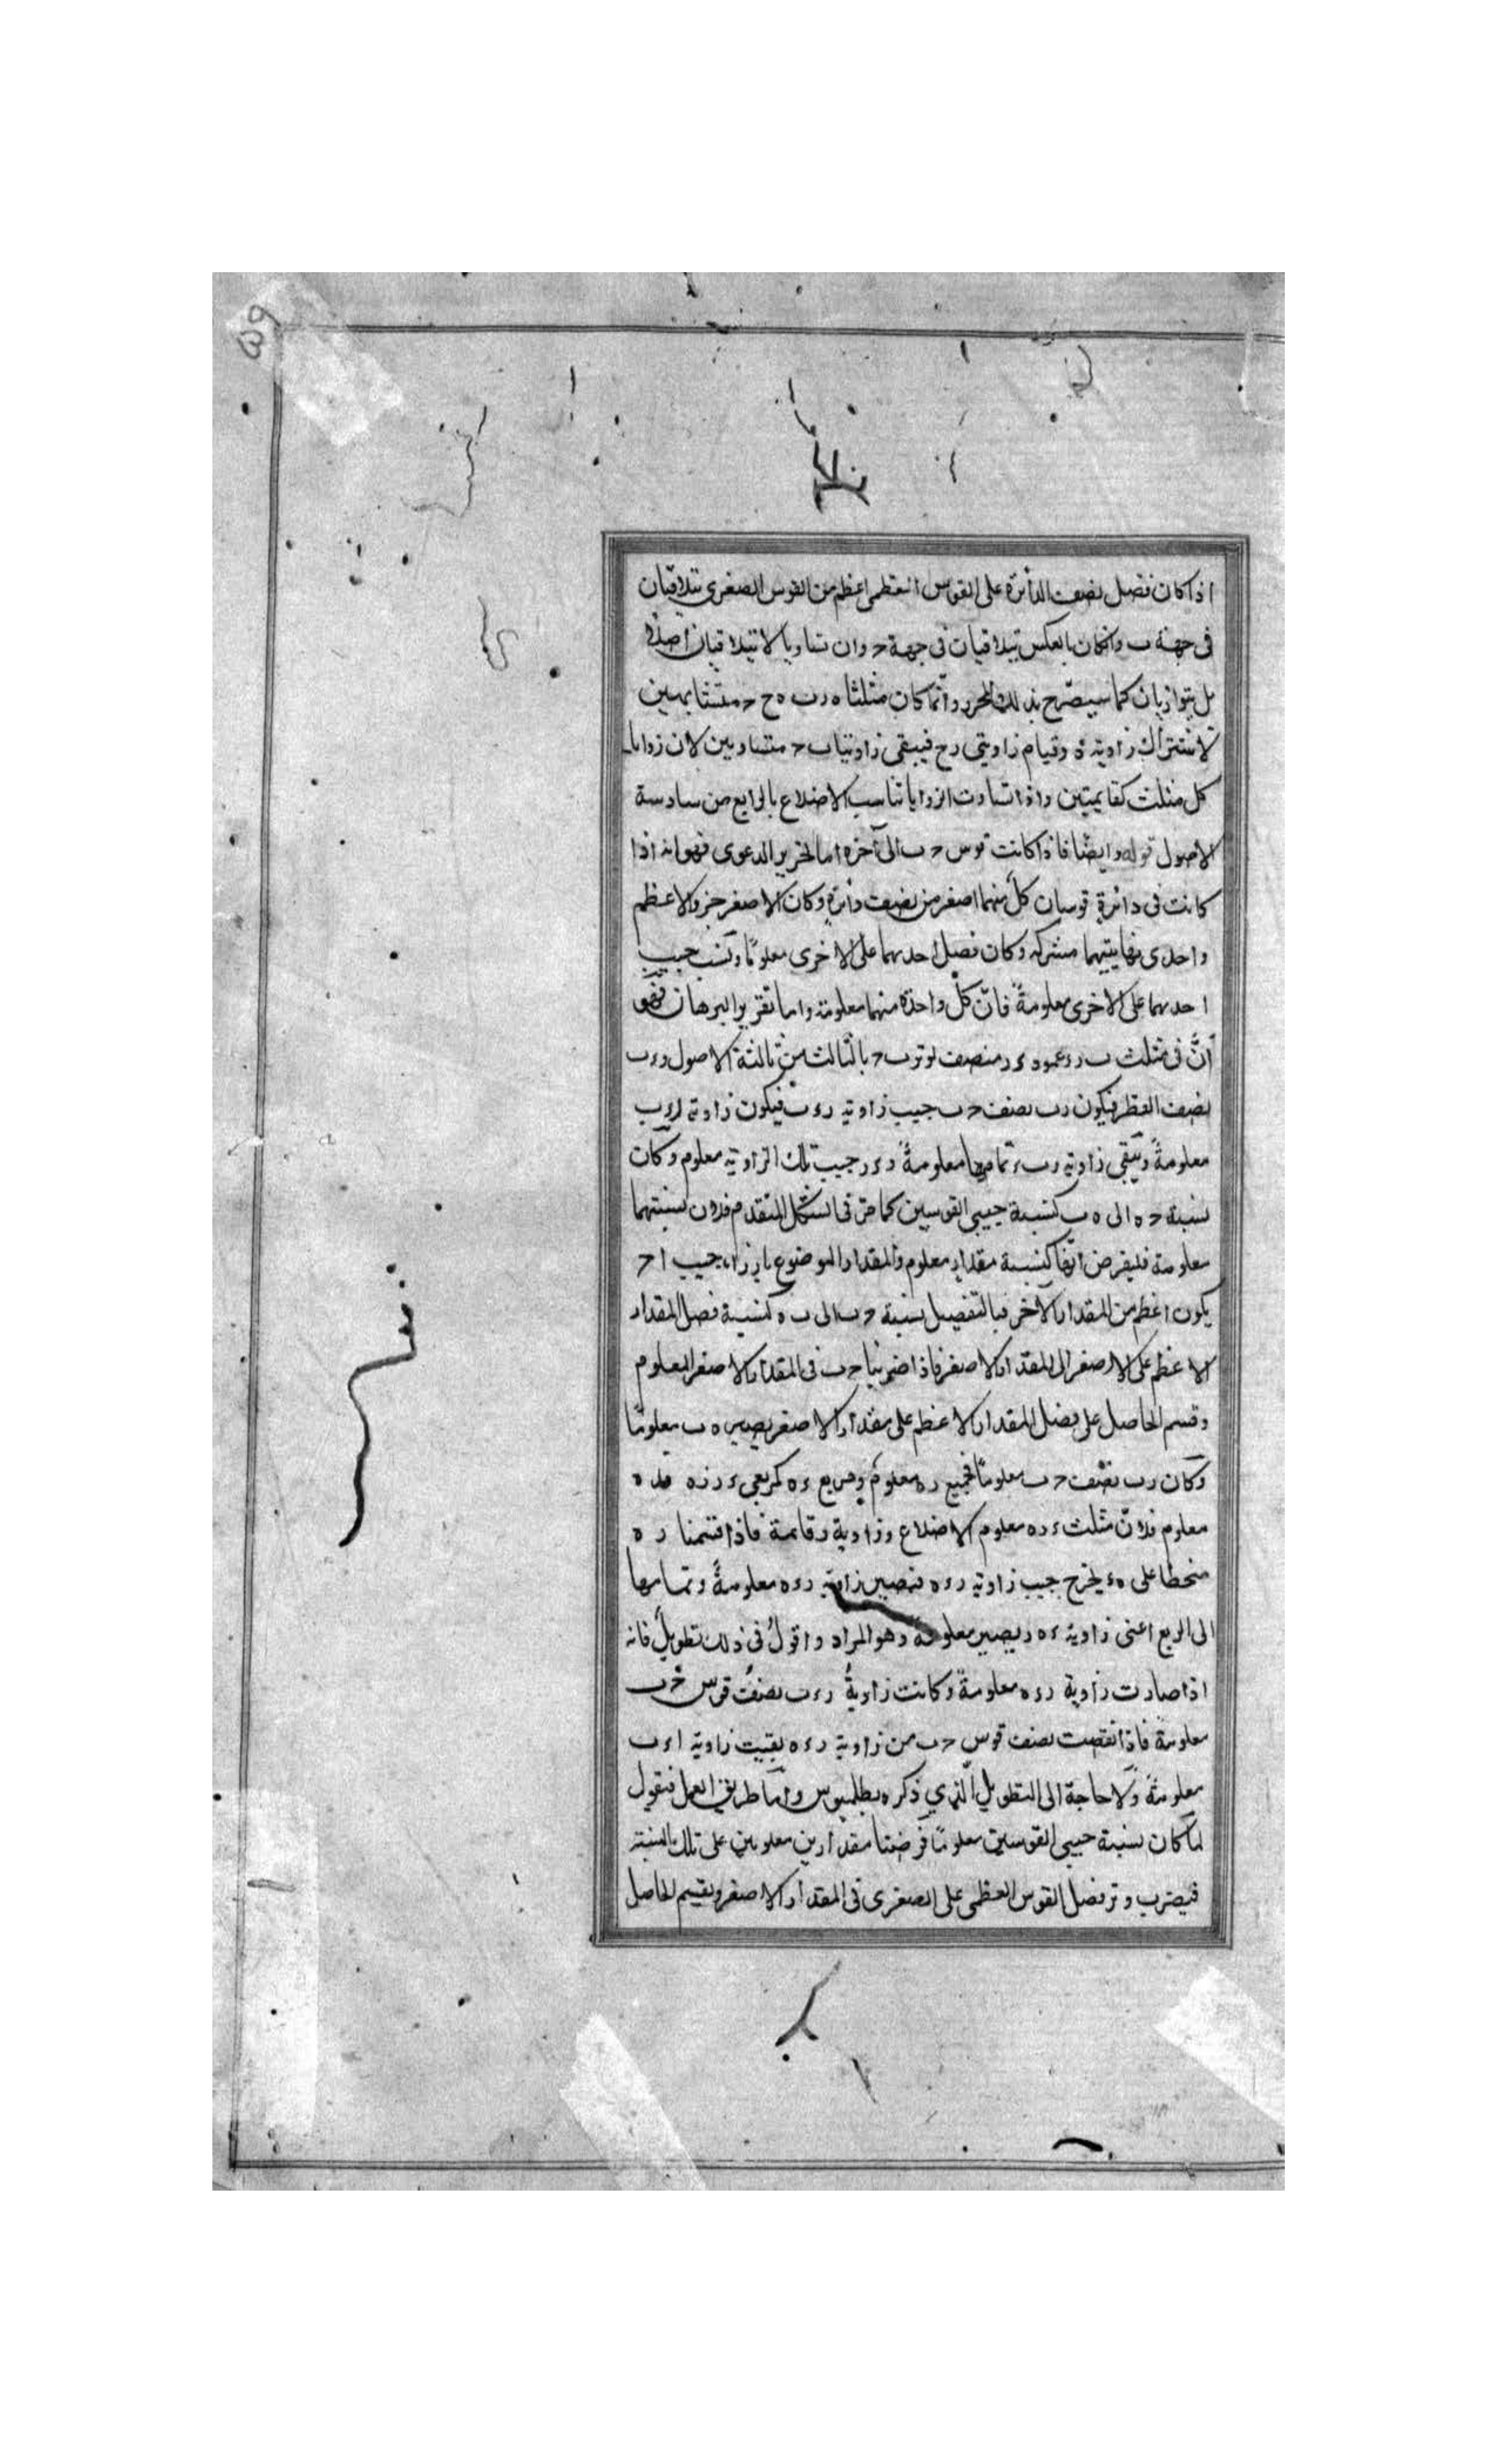 اذا كان فضل نصف الدائرة على القوس العظمى اعظم من القوس الصغرى تتلاقيان
فى جهة ب وان كان بالعكس تتلاقيان فى جهة ح وان تساويا لا تتلاقيان اصلا
بل يتوازيان كما سيصرّح بذلك المحرر وانّما كان مثلثا ه ر ب ه ح ح متشابهين
لاشتراك زاوية ه وقيام زاويتى ر ح فيبقى زاويتا ب ح متساويين لان زوايا
كل مثلث كقايمتين واذا تساوت الزوايا تناسب الاضلاع بالرابع من سادسة
الاصول قوله وايضا فاذا كانت قوس ح ب الى آخره اما تحرير الدعوى فهو انه اذا
كانت فى دائرة قوسان كلّ منهما اصغر من نصف دائرة وكان الاصغر جزو الاعظم
واحدى نهايتيهما مشتركه وكان فضل احدهما على الاخرى معلومًا ونسب جيب
احدهما على الاخرى معلومةً فانّ كلّ واحدة منهما معلومة واما تقرير البرهان فهو
أنّ فى مثلث ب ر ء عمود ء ر منصف لوتر ب ح بالثالث من ثالثة الاصول و ء ب
نصف القطر فيكون ر ب نصف ح ب جيب زاوية ر ء ب فيكون زاوية ر ء ب
معلومةً وتبقى زاوية ر ب ء تمامها معلومةً و ء ر جيب تلك الزاوية معلوم وكان
نسبة ح ه الى ه ب كنسبة جيبى القوسين كما مرّ فى الشكل المتقدم فلان نسبتهما
معلومة فليفرض انّها كنسبة مقدار معلوم والمقدار الموضوع بازاء جيب ا ح
يكون اعظم من المقدار الآخر فبالتفصيل نسبة ح ب الى ب ه كنسبة فضل المقدار
الاعظم على الاصغر الى المقدار الاصغر فاذا ضربنا ح ب فى المقدار الاصغر المعلوم
وقسم الحاصل على فضل المقدار الاعظم على مقدار الاصغر يصير ه ب معلومًا
وكان ر ب نصف ح ب معلومًا فجميع ر ه معلوم ومربع ء ه كمربعى ء ر ر ه فد ه
معلوم فلانّ مثلث ء ر ه معلوم الاضلاع وزاوية ر قائمة فاذا قسمنا ر ه
منحطا على ه ء يخرج جيب زاوية ر ء ه فتصير زاوية ر ء ه معلومةً وتمامها
الى الربع اعنى زاوية ء ه ر يصير معلومة وهو المراد واقول فى ذلك تطويل فانه
اذا صارت زاوية ر ء ه معلومةً وكانت زاويةُ ر ء ب نصفُ قوس ح ب
معلومةً فاذا نقصت نصف قوس ح ب من زاوية ر ء ه بقيت زاوية ا ء ب
معلومةً ولا حاجة الى التطويل الّذى ذكره بطلميوس وامّا طريق العمل فنقول
لما كان نسبة جيبى القوسين معلومًا فرضنا مقدارين معلومين على تلك النسبة
فيضرب وتر فضل القوس العظمى على الصغرى فى المقدار الاصغر ونقسم الحاصل